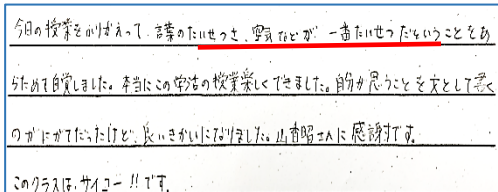 今日の授業をふりかえって、言葉のたいせつさ、空気などが、一番たいせつだということをあ
らためて自覚しました。本当にこの学活の授業楽しくできました。自分が思うことを文として書く
のがにがてだったけど、良いきかいになりました。山青昭さんに感謝です。
このクラスは、サイコー!!です。